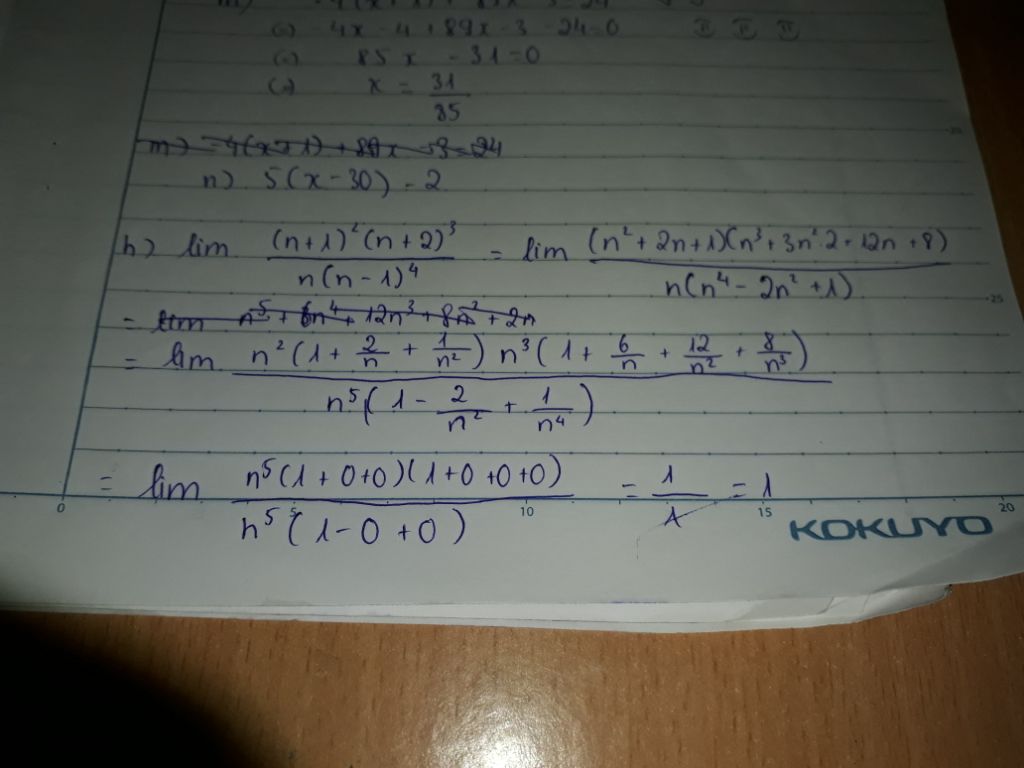 (=) -4x - 4 + 89x - 3 - 24 = 0
(=) 85x - 31 = 0
(=) x = 31/85
m) -4(x+1) + 89x - 3 = 24
n) 5(x - 30) = 2
h) lim (n+1)²(n+2)³ / n(n-1)⁴ = lim (n² + 2n + 1)(n³ + 3n².2 + 12n + 8) / n(n⁴ - 2n² + 1)
= lim n⁵ + 6n⁴ + 12n³ + 8n² + 2n
= lim n²(1 + 2/n + 1/n²) n³(1 + 6/n + 12/n² + 8/n³) / n⁵(1 - 2/n² + 1/n⁴)
= lim n⁵(1 + 0 + 0)(1 + 0 + 0 + 0) / n⁵(1 - 0 + 0) = 1/1 = 1
0 5 10 15 20
KOKUYO
25